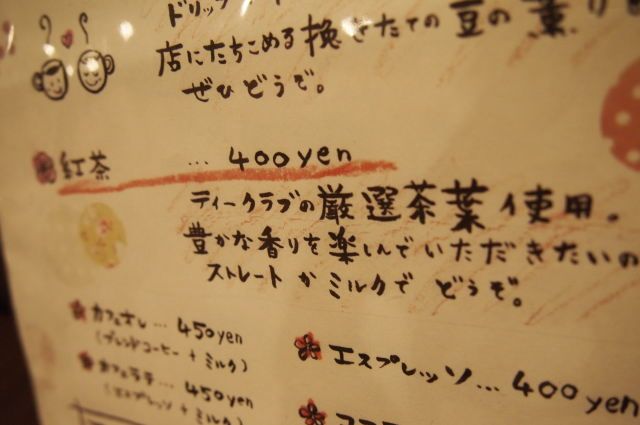 ドリップ
店にたちこめる挽きたての豆の薫り
ぜひどうぞ。
紅茶 ... 400yen
ティークラブの厳選茶葉使用。
豊かな香りを楽しんでいただきたいの
ストレートかミルクでどうぞ。
カフェオレ... 450yen
(ブレンドコーヒー + ミルク)
カフェラテ... 450yen
(エスプレッソ + ミルク)
エスプレッソ... 400yen